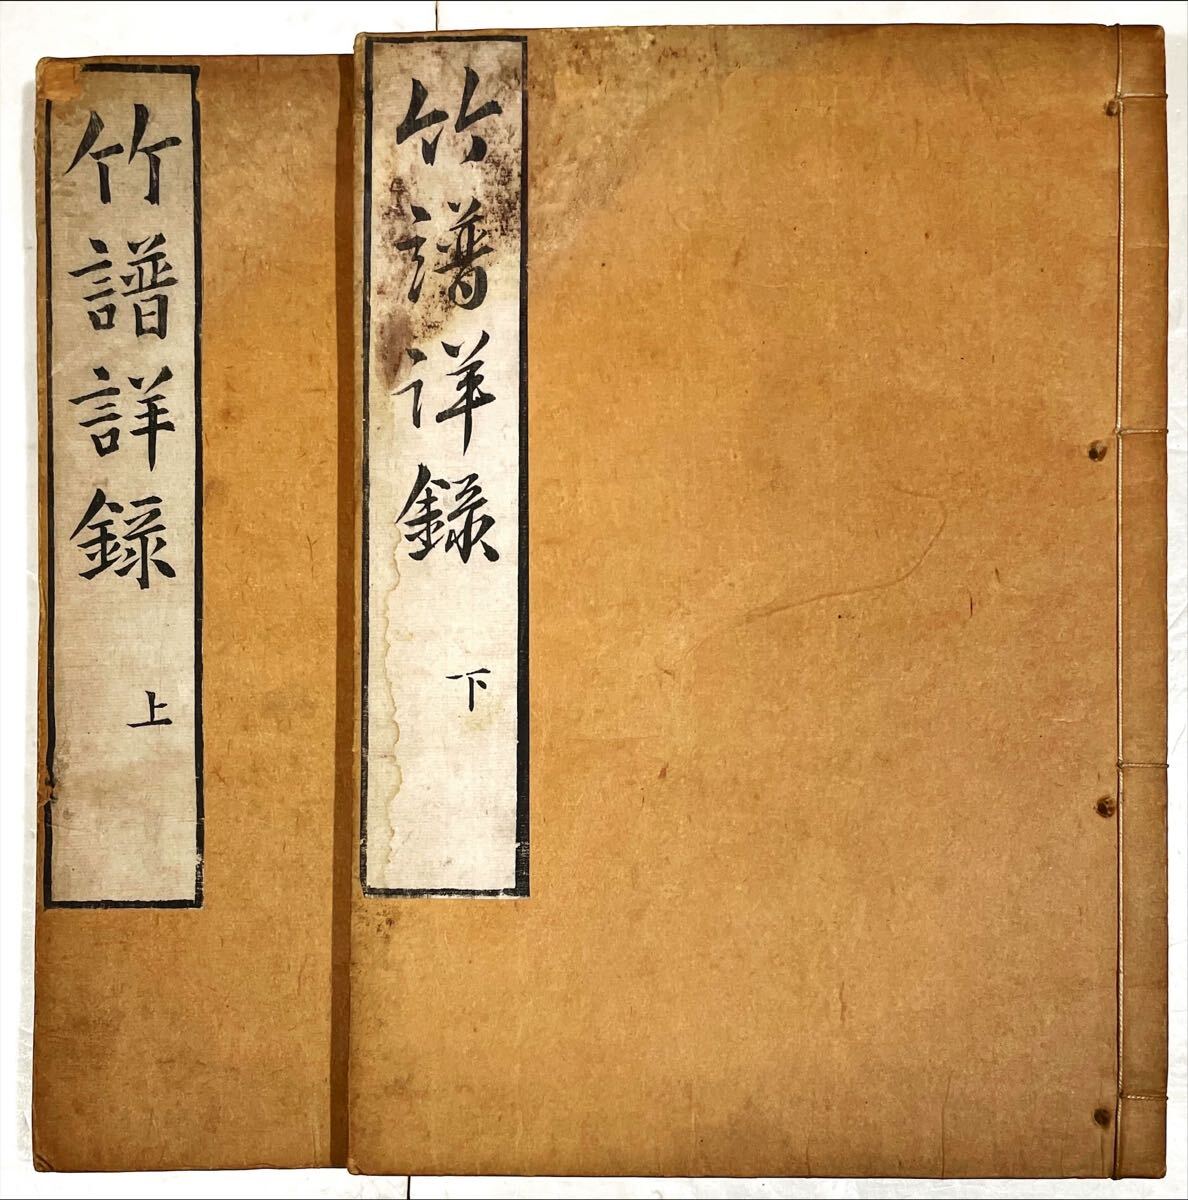 竹譜詳録
上
竹譜詳録
下